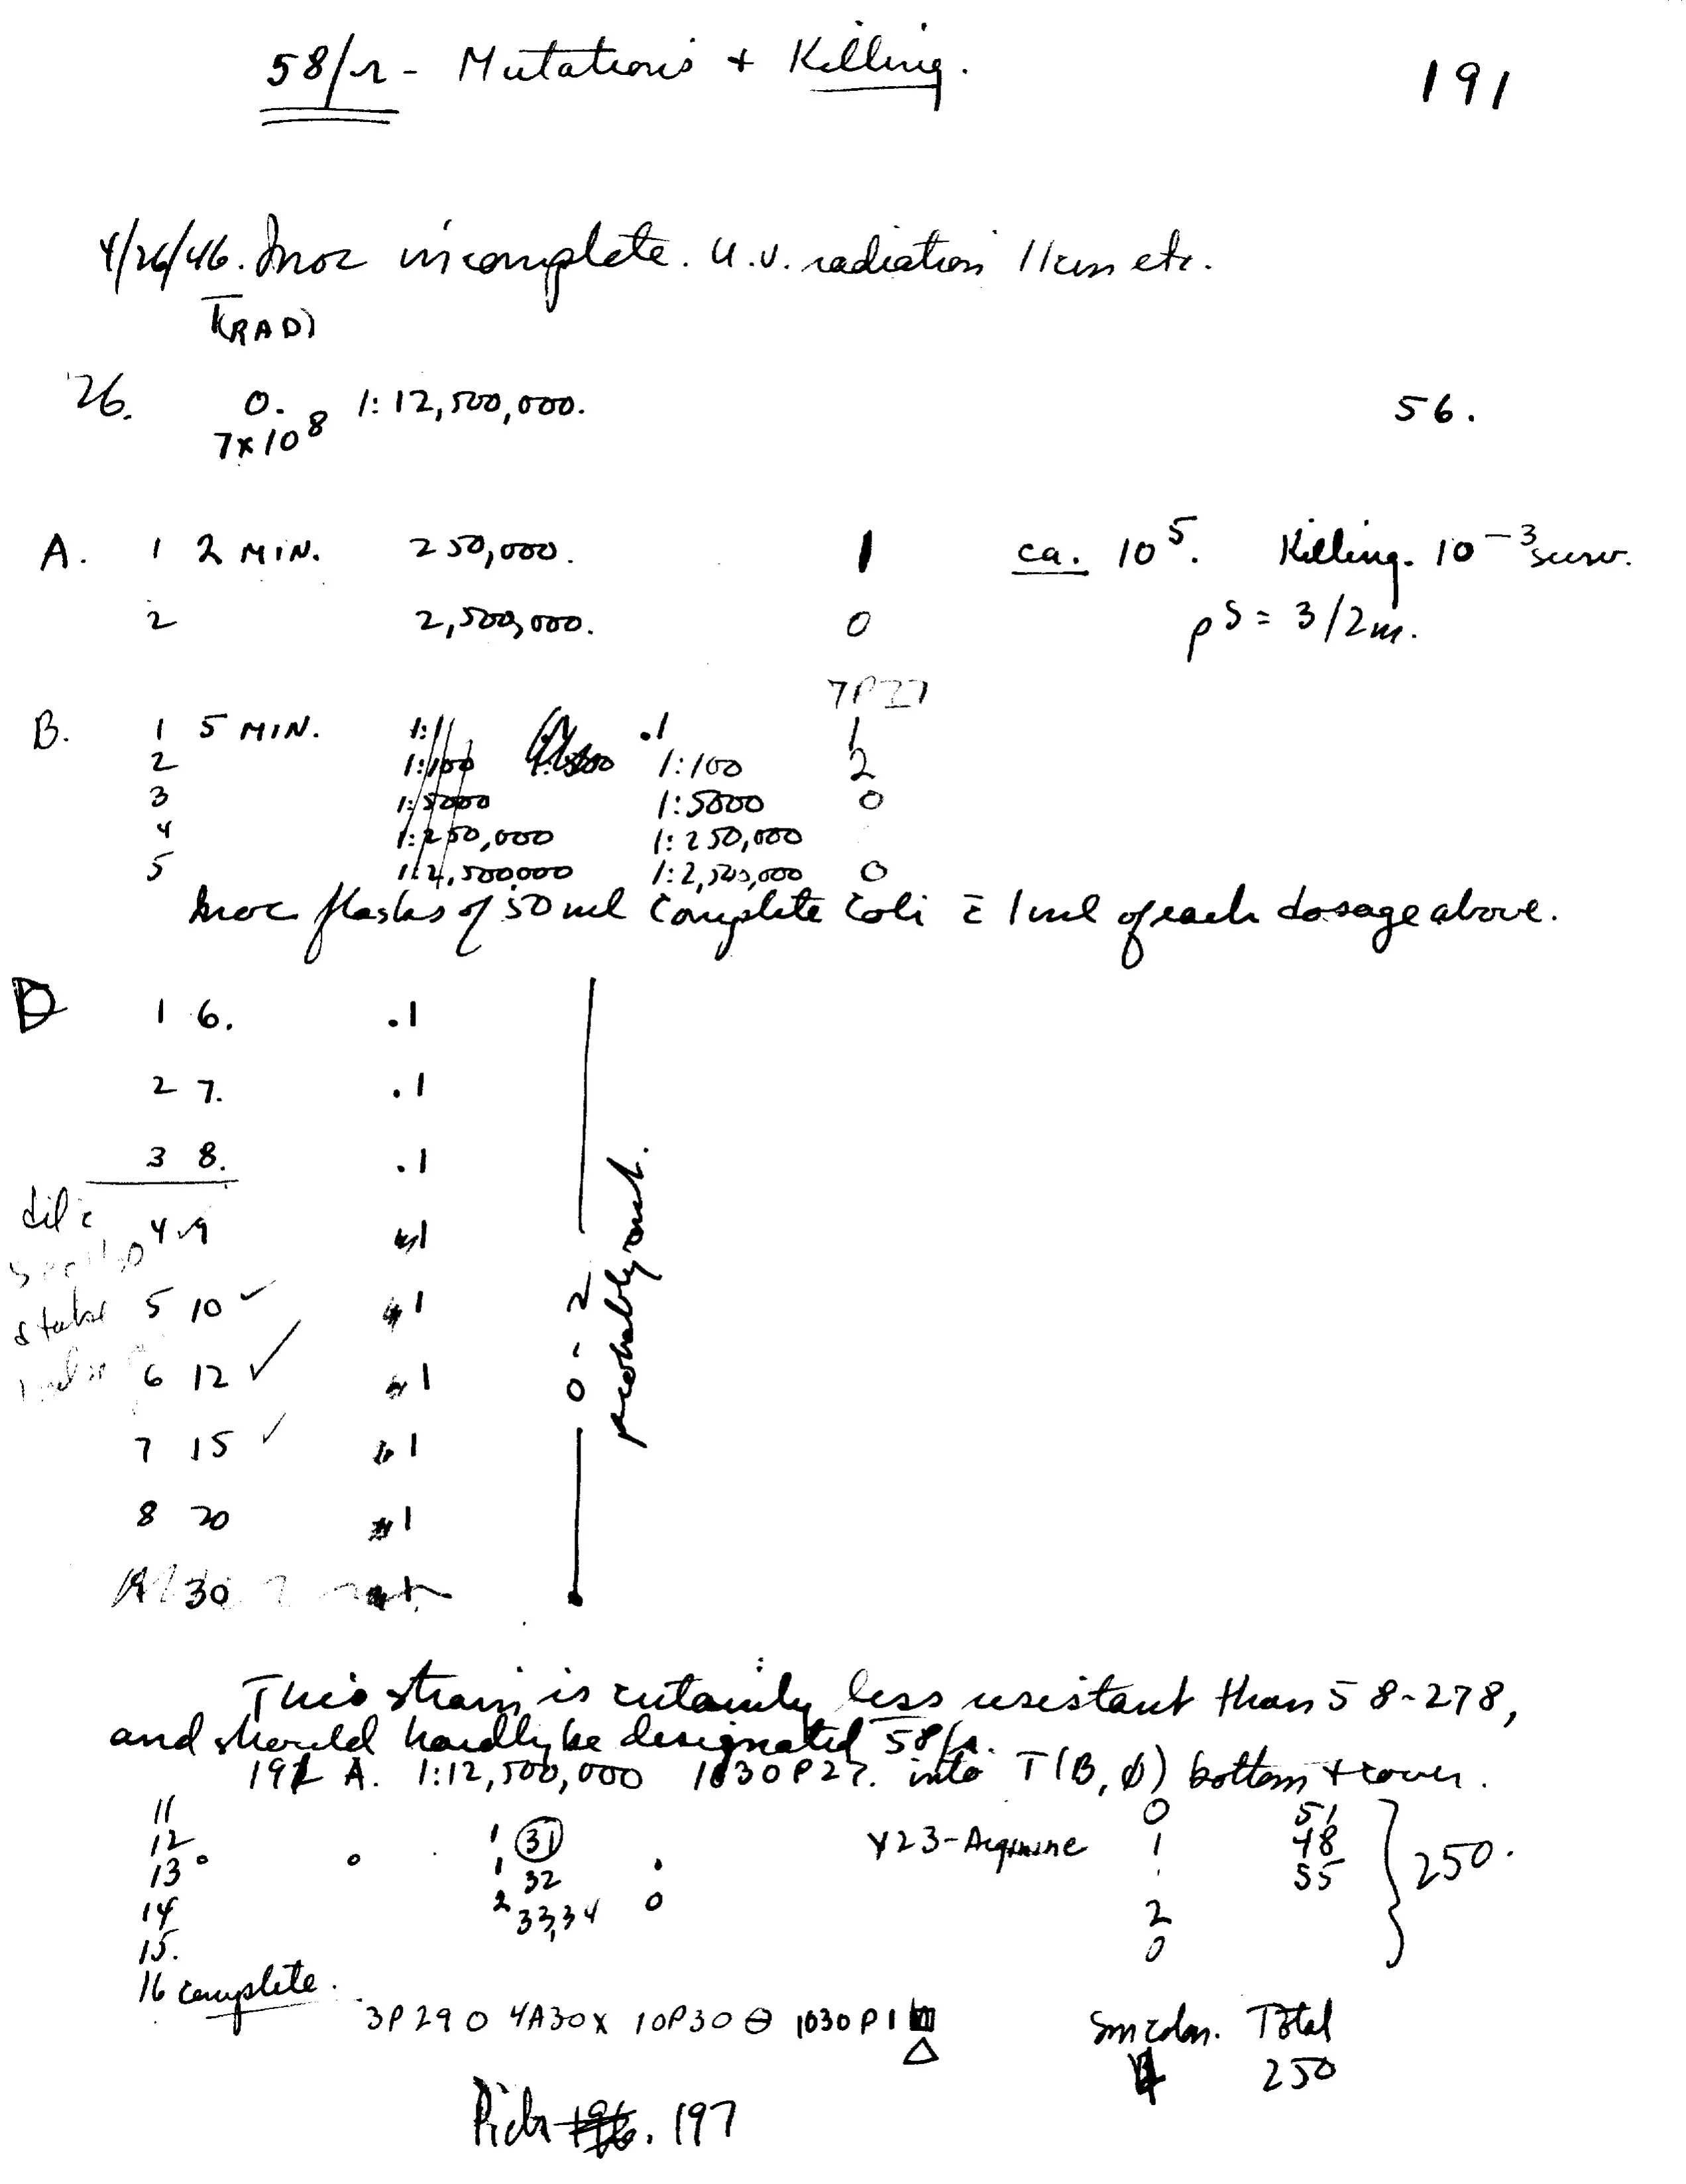 58/r - Mutations + Killing. 191
4/26/46. Inoc incomplete. U.V. radiation 11cm etc.
T(RAD)
26. 0. 1:12,500,000. 56.
7x10^8
A. 1 2 MIN. 250,000. 1 ca. 10^5. Killing. 10^-3 surv.
2 2,500,000. 0 pS = 3/2m.
7P27
B. 1 5 MIN. 1:1 .1 1
2 1:100 1:100 2
3 1:5000 1:5000 0
4 1:250,000 1:250,000
5 1:2,500,000 1:2,500,000 0
Inoc flasks of 50 ml Complete Coli c̄ 1 ml of each dosage above.
D 1 6. .1
2 7. .1
3 8. .1
dil c̄
4 9 1
5 10 ✓ 1
6 12 ✓ 1
7 15 ✓ 1
8 20 1
30
0 - 2
probably cont.
This strain is certainly less resistant than 58-278,
and should hardly be designated 58/r.
191 A. 1:12,500,000 1030P27. into T(B, φ) bottom + cover.
11 0 51
12 1 31 Y23-Arginine 1 48
13 1 32 55 } 250.
14 2 33,34 0 2
15. 0
16 complete.
3P29 O 4A30 X 10P30 ⊖ 1030P1
△
Sm colon. Total
4 250
Picks 196. 197